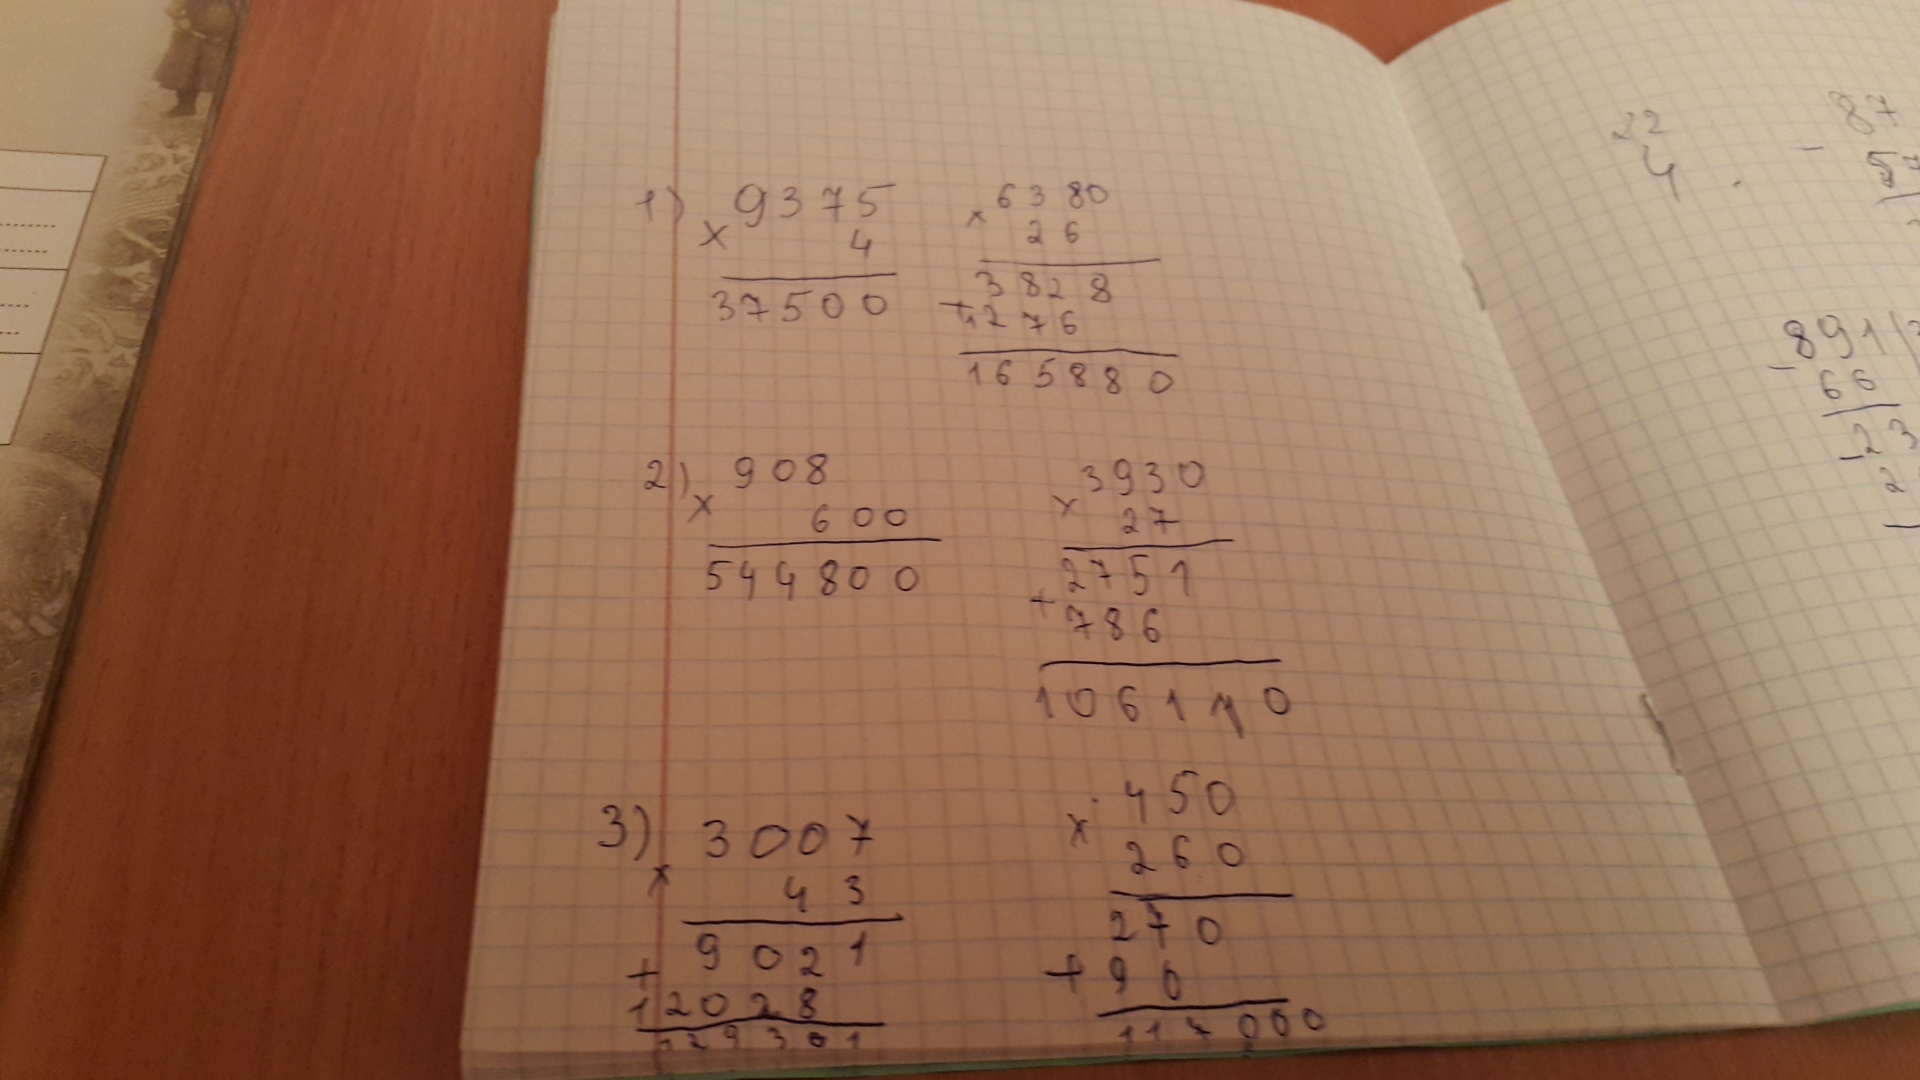 1) 9375
× 4
37500
6380
× 26
3828
+ 1276
165880
2) 908
× 600
544800
3930
× 27
2751
+ 786
106110
3) 3007
× 43
9021
+ 12028
129301
450
× 260
270
+ 90
117000
22
4
87
−
891
− 66
23
−